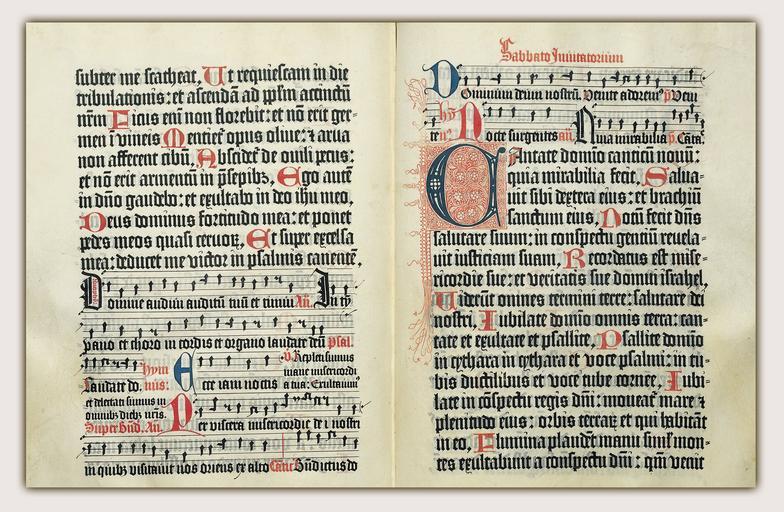 subter me scateat, Ut requiescam in die
tribulationis: et ascendā ad pplm accinctū
nrm Ficus eni non florebit: et nō erit ger-
men ī vineis Mentiet' opus oliue: ⁊ arua
non afferent cibū, Abscidet' de ouili pecus:
et nō erit armentū in p̄sepibꝫ, Ego autē
in dn̄o gaudebo: et exultabo in deo ihu meo,
Deus dominus fortitudo mea: et ponet
pedes meos quasi ceruoꝝ, Et super excelsa
mea: deducet me victor in psalmis canentē,
Domine audiui auditū tuū et timui An. In tȳ
pano et choro in cordis et organo laudate deū Psal.
hym V. Repleti sumus
Laudate do. nus: Ecce iam noctis mane misericordi
a tua: Exultauim'
et delectati sumus in
omnibꝫ diebꝫ nr̄is. Per viscera misericordie dei nostri
Super Bn̄d. An.
in quibꝫ visitauit nos oriens ex alto Cāticū Bn̄dictus do
Sabbato Inuitatorium
Dominum deum nostrū. Venite adorem' p̄s Veni
te hȳ nꝰ Nocte surgentes an̄. Quia mirabilia p̄s. Cāta
Cantate domino canticū nouū:
quia mirabilia fecit, Salua-
uit sibi dextera eius: et brachiū
sanctum eius, Notū fecit dn̄s
salutare suum: in conspectu gentiū reuela-
uit iusticiam suam, Recordatus est mise-
ricordie sue: et veritatis sue domui israhel,
Viderūt omnes termini terre: salutare dei
nostri, Iubilate domino omnis terra: can-
tate et exultate et psallite, Psallite domino
in cythara in cythara et voce psalmi: in tu-
bis ductilibus et voce tube cornee, Iubi-
late in cōspectu regis dn̄i: moueat' mare ⁊
plenitudo eius: orbis terraꝝ et qui habitāt
in eo, Flumina plaudēt manu simł mon-
tes exultabunt a conspectu dn̄i: qm̄ venit